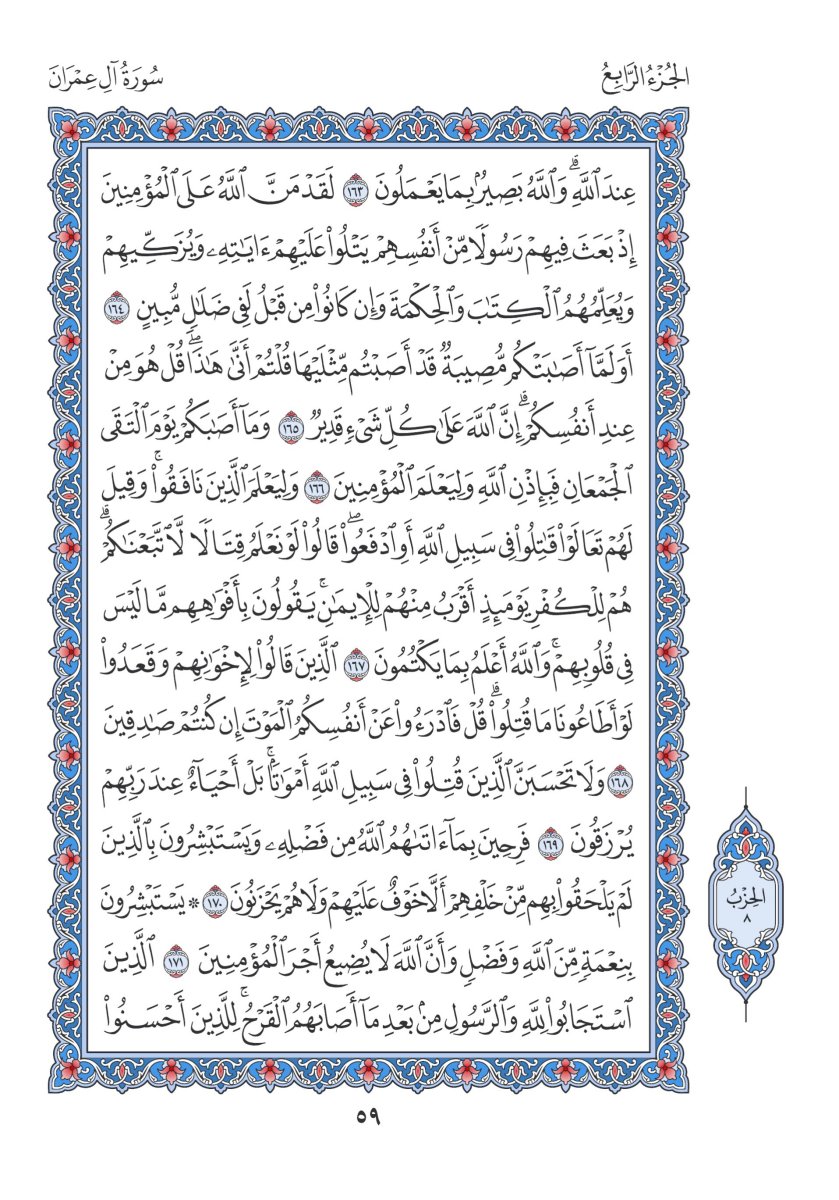 الجُزْءُ الرَّابِعُ
سُورَةُ آلِ عِمْرَانَ
عِندَ ٱللَّهِۗ وَٱللَّهُ بَصِيرُۢ بِمَا يَعْمَلُونَ ١٦٣ لَقَدْ مَنَّ ٱللَّهُ عَلَى ٱلْمُؤْمِنِينَ
إِذْ بَعَثَ فِيهِمْ رَسُولًا مِّنْ أَنفُسِهِمْ يَتْلُوا۟ عَلَيْهِمْ ءَايَـٰتِهِۦ وَيُزَكِّيهِمْ
وَيُعَلِّمُهُمُ ٱلْكِتَـٰبَ وَٱلْحِكْمَةَ وَإِن كَانُوا۟ مِن قَبْلُ لَفِى ضَلَـٰلٍ مُّبِينٍ ١٦٤
أَوَلَمَّآ أَصَـٰبَتْكُم مُّصِيبَةٌ قَدْ أَصَبْتُم مِّثْلَيْهَا قُلْتُمْ أَنَّىٰ هَـٰذَاۖ قُلْ هُوَ مِنْ
عِندِ أَنفُسِكُمْۗ إِنَّ ٱللَّهَ عَلَىٰ كُلِّ شَىْءٍ قَدِيرٌ ١٦٥ وَمَآ أَصَـٰبَكُمْ يَوْمَ ٱلْتَقَى
ٱلْجَمْعَانِ فَبِإِذْنِ ٱللَّهِ وَلِيَعْلَمَ ٱلْمُؤْمِنِينَ ١٦٦ وَلِيَعْلَمَ ٱلَّذِينَ نَافَقُوا۟ۚ وَقِيلَ
لَهُمْ تَعَالَوْا۟ قَـٰتِلُوا۟ فِى سَبِيلِ ٱللَّهِ أَوِ ٱدْفَعُوا۟ۖ قَالُوا۟ لَوْ نَعْلَمُ قِتَالًا لَّٱتَّبَعْنَـٰكُمْۗ
هُمْ لِلْكُفْرِ يَوْمَئِذٍ أَقْرَبُ مِنْهُمْ لِلْإِيمَـٰنِۚ يَقُولُونَ بِأَفْوَٰهِهِم مَّا لَيْسَ
فِى قُلُوبِهِمْۚ وَٱللَّهُ أَعْلَمُ بِمَا يَكْتُمُونَ ١٦٧ ٱلَّذِينَ قَالُوا۟ لِإِخْوَٰنِهِمْ وَقَعَدُوا۟
لَوْ أَطَاعُونَا مَا قُتِلُوا۟ۗ قُلْ فَٱدْرَءُوا۟ عَنْ أَنفُسِكُمُ ٱلْمَوْتَ إِن كُنتُمْ صَـٰدِقِينَ
١٦٨ وَلَا تَحْسَبَنَّ ٱلَّذِينَ قُتِلُوا۟ فِى سَبِيلِ ٱللَّهِ أَمْوَٰتًۢاۚ بَلْ أَحْيَآءٌ عِندَ رَبِّهِمْ
يُرْزَقُونَ ١٦٩ فَرِحِينَ بِمَآ ءَاتَىٰهُمُ ٱللَّهُ مِن فَضْلِهِۦ وَيَسْتَبْشِرُونَ بِٱلَّذِينَ
لَمْ يَلْحَقُوا۟ بِهِم مِّنْ خَلْفِهِمْ أَلَّا خَوْفٌ عَلَيْهِمْ وَلَا هُمْ يَحْزَنُونَ ١٧٠ * يَسْتَبْشِرُونَ
بِنِعْمَةٍ مِّنَ ٱللَّهِ وَفَضْلٍ وَأَنَّ ٱللَّهَ لَا يُضِيعُ أَجْرَ ٱلْمُؤْمِنِينَ ١٧١ ٱلَّذِينَ
ٱسْتَجَابُوا۟ لِلَّهِ وَٱلرَّسُولِ مِنۢ بَعْدِ مَآ أَصَابَهُمُ ٱلْقَرْحُۚ لِلَّذِينَ أَحْسَنُوا۟
الحِزْبُ
٨
٥٩